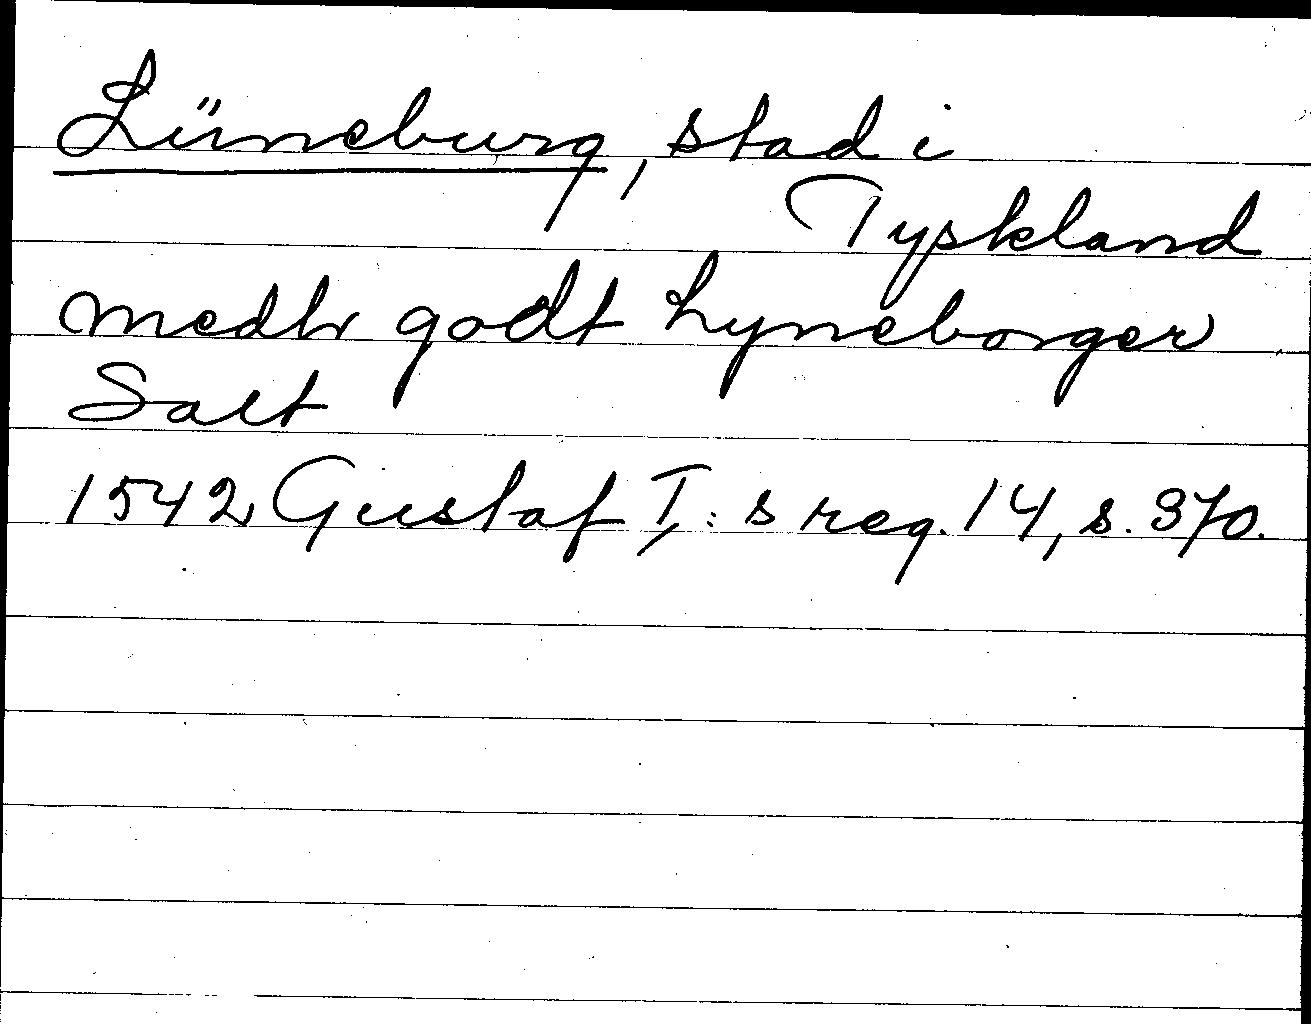 Lüneburg, stad i
Tyskland
medh godt Lyneborger
Salt
1542 Gustaf I:s reg. 14, s. 370.